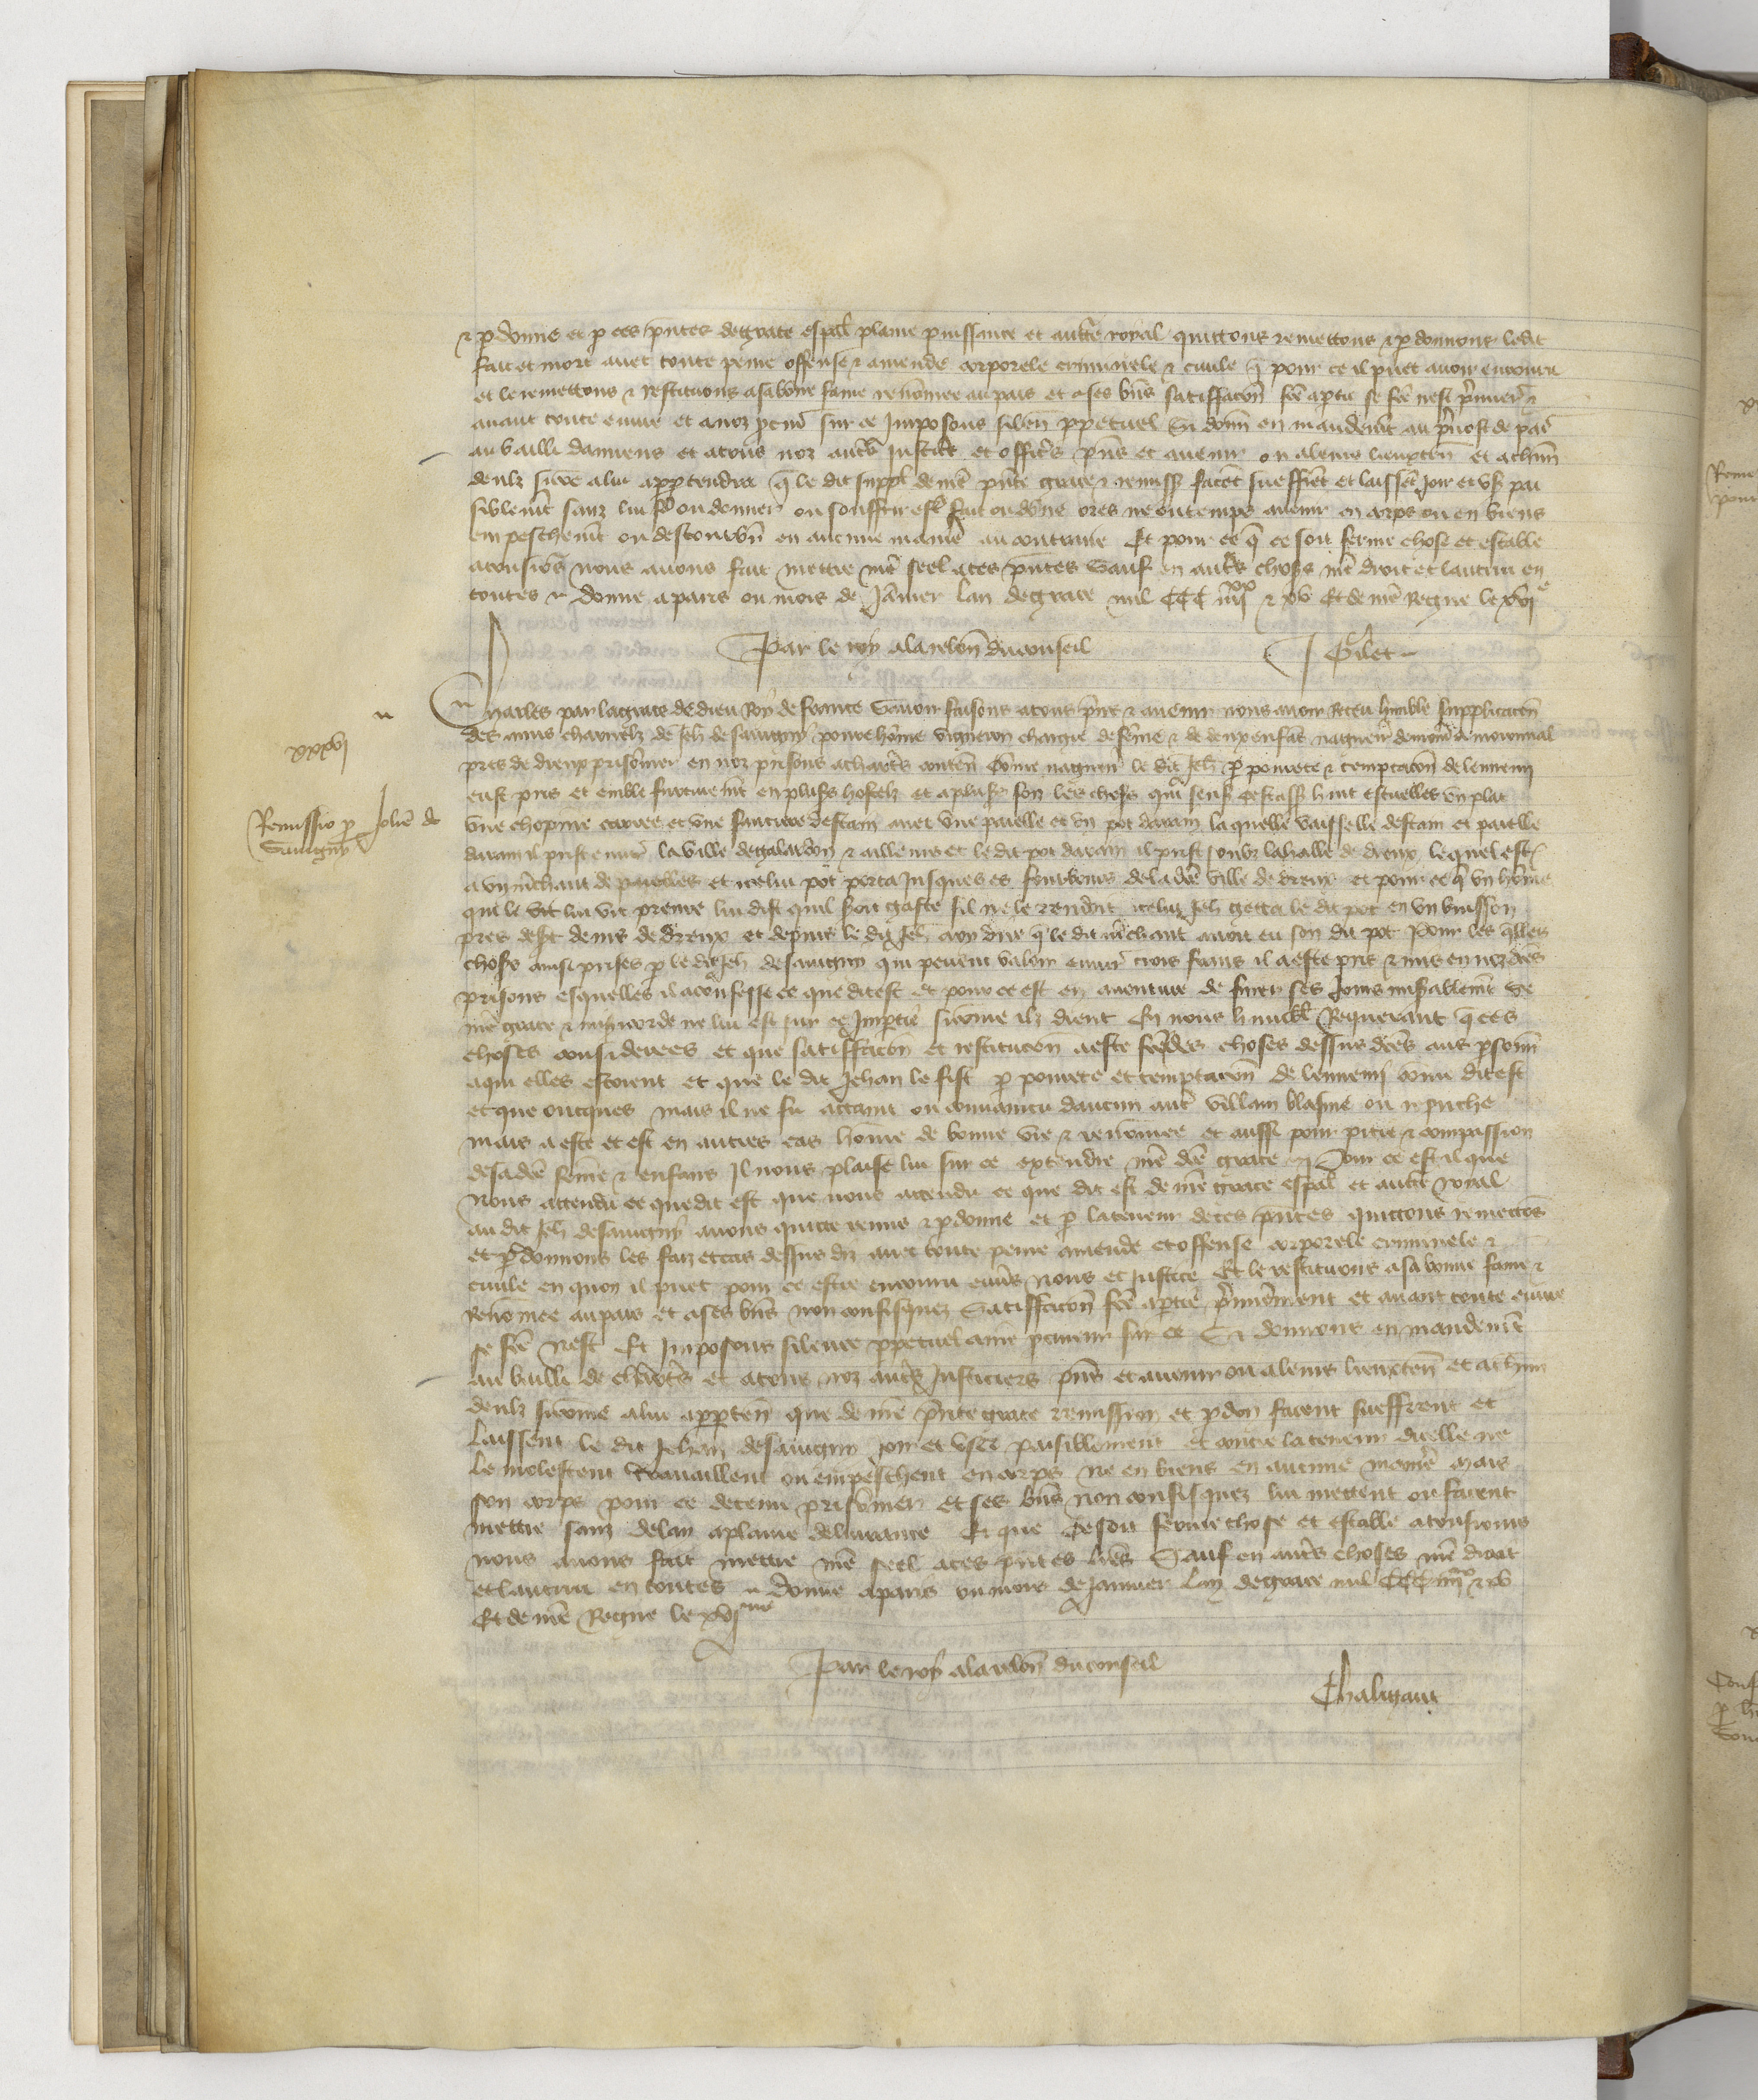 & pdonne et p ces pntes de grace espal plaine puissance et aucte royal quittons remettons & pdonnons ledit
fait et mort avec toute peine offense & amende corporele criminele & civile q pour ce il puet avoir encouru
et le remettons & restituons a sa bonne fame renommee au pais et a ses biens satisfaccon fcte a ptie se fcte nest
avant toute euvre et a noz sur ce Imposons silen ppetuel Si donn en mandemt au pvost de par
au bailli damiens et a tous noz autres Justic et officrs pns et avenir ou a leurs lieuxten et a chun
deulz sicoe a lui apptendra q le dit suppl de nre pnte grace & remiss facent sueffret et laisset joir et us pai
siblemt sanz lui ou donner ou souffrir est fait ou done ores ne ou temps avenir en corps ou en biens
empeschemt ou destourbn en aucune maniere au contraire Et pour ce q ce soit ferme chose et estable
a tousiors nous avons fait mettre nre seel a ces pntes Sauf en autres choses nre droit et lautrui en
toutes Donne a paris ou mois de Janvier lan de grace mil CCC iiijxx & xv Et de nre Regne le xvje
Par le roy a la relon du conseil J Gilet
xxxvj
Remissio p Johe de
Savigny
Charles par la grace de dieu Roy de france Savoir faisons a tous pns & avenir nous avoir receu humble supplicacon
des amis charnelz de Jeh de savigny povre home vigneron chargie de feme & de deux enfas nagueres demour a
pres de dreux prisonnier en noz prisons a chartres conten Come naguer le dit Jeh p povrete & temptacon de lennemi
eust pris et emble furtivemt en plusrs hostelz et a plusrs fois les choses qui sens huit escuelles un plat
une chopine carree et une saucere destain avec une paielle et un pot darain laquelle vaisselle destain et paielle
darain il prist envir la ville de galardon & ailleurs et le dit pot darain il prist soubz la halle de dreux lequel est
a un mchant de paielles et icelui pot porta Jusques es fourbours de la dce ville de dreux et pour ce q un home
qui le dit lui vit prenre lui dist quil seroit gaste sil ne le rendoit icelui Jeh getta le dit pot en un buisson
pres de st denis de dreux et depuis le dit Jeh oy dire q le dit mchant avoit eu son dit pot Pour les quelles
choses ainsi prises p le dit Jeh de savigny qui pevent valoir envir trois frans il a este pris & mis en noz dces
prisons esquelles il a confesse ce que dit est et pour ce est en aventure de finer ses Jours miserablemt se
nre grace & misericorde ne lui est sur ce Impartie sicome ilz dient En nous humbl Requerant q ces
choses considerees et que satisfacon et restitucon a este fcte des choses dessus dces aus psonn
a qui elles estoient et que le dit Jehan le fist p povrete et temptacon de lennemi come dit est
et que oncques mais il ne fu attaint ou convaincu daucun autre villain blasme ou reprouche
mais a este et est en autres cas home de bonne vie & renommee et aussi pour pitie & compassion
de sa dce feme & enfans Il nous plaise lui sur ce extendre nre dce grace Pour ce est il que
Nous attendu ce que dit est que nous attendu ce que dit est de nre grace espal et aucte royal
au dit Jeh de savigny avons quitte remis & pdonne et p la teneur de ces pntes quittons remettos
et pdonnons les faiz et cas dessus diz avec toute peine amende et offense corporele criminele &
civile en quoy il puet pour ce estre encouru envrs nous et Justice Et le restituons a sa bonne fame &
Renomee au pais et a ses biens non confisquez Satisfacon fcte a ptie premierement et avant toute euvre
se fcte nest Et Imposons silence ppetuel a nre procureur sur ce Et donnons en mandemt
au bailli de chartres et a tous noz autres Justiciers pns et avenir ou a leurs lieuxten et a chun
deulz sicome a lui apparten que de nre pnte grace remission et pdon facent sueffrent et
laissent le dit Jehan de savigny joir et user paisiblement et contre la teneur dicelle ne
le molestent travaillent ou empeschent en corps ne en biens en aucune maniere mais
son corps pour ce detenu prisonnier et ses biens non confisquez lui mettent ou facent
mettre sanz delay a plaine delivrance Et que ce soit ferme chose et estable a tousiours
nous avons fait mettre nre seel a ces pntes lres Sauf en autres choses nre droit
et lautrui en toutes Donne a paris ou mois de Janvier Lan de grace mil CCC iiijxx & xv
Et de nre Regne le xvjme
Par le roy a la relon du conseil
Chaligaut